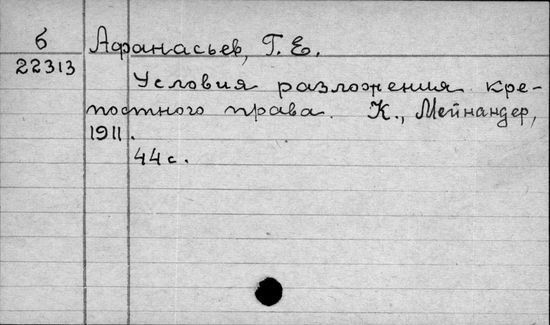 б
22313
Афанасьев, Г. Е.
Условия разложения кре-
постного права. К., Мейнандер,
1911.
44 с.